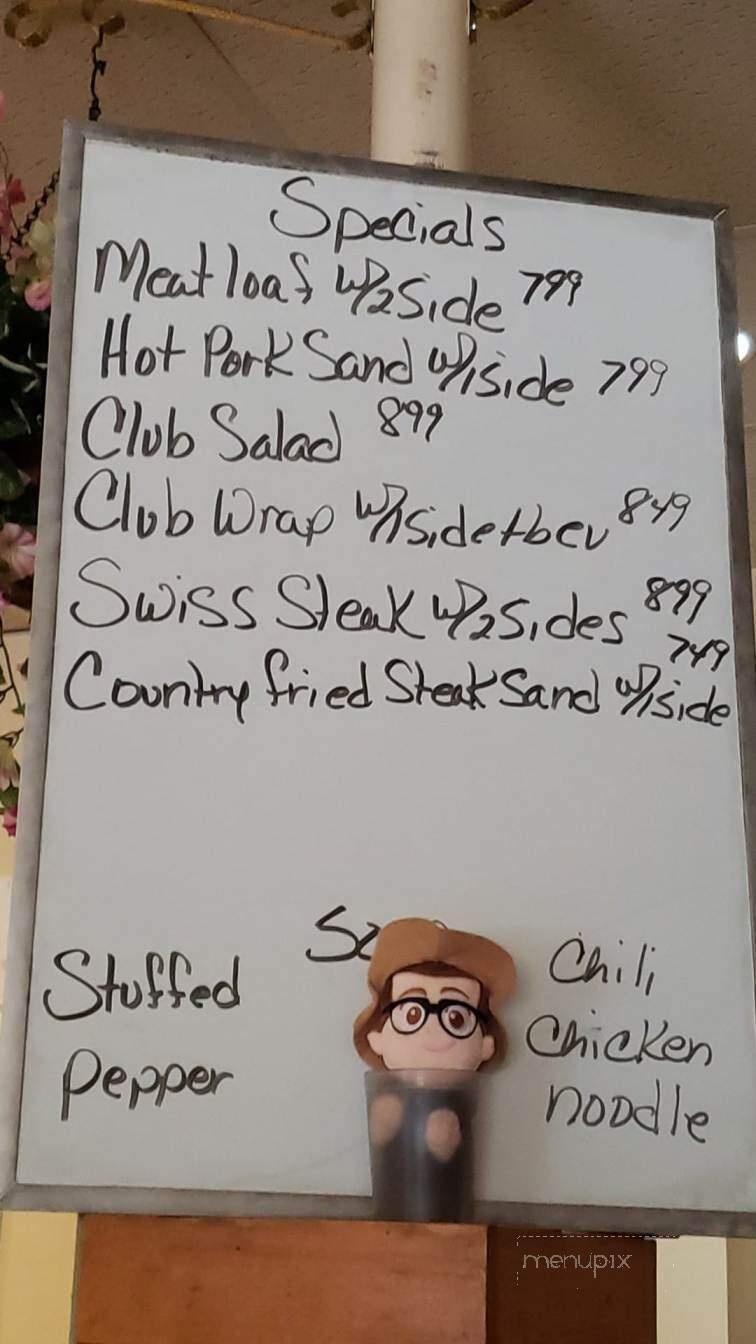 Specials
Meatloaf w/2 Side 799
Hot Pork Sand w/1 side 799
Club Salad 899
Club Wrap w/1 Side + bev 849
Swiss Steak w/2 Sides 899
Country fried Steak Sand w/1 side 749
Stuffed
Pepper
Chili
Chicken
noodle
menupix